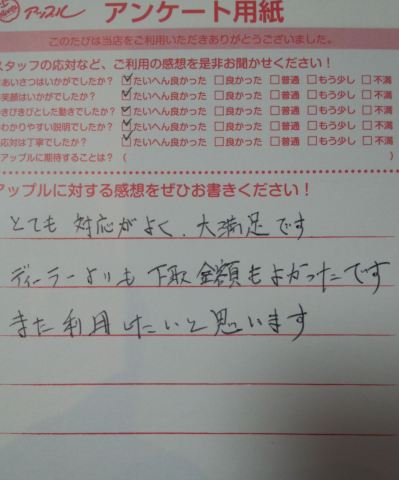 アップル アンケート用紙
このたびは当店をご利用いただきありがとうございました。
スタッフの応対など、ご利用の感想を是非お聞かせください！
あいさつはいかがでしたか？ ☑たいへん良かった □良かった □普通 □もう少し □不満
笑顔はいかがでしたか？ ☑たいへん良かった □良かった □普通 □もう少し □不満
きびきびとした動きでしたか？ ☑たいへん良かった □良かった □普通 □もう少し □不満
わかりやすい説明でしたか？ ☑たいへん良かった □良かった □普通 □もう少し □不満
応対は丁寧でしたか？ ☑たいへん良かった □良かった □普通 □もう少し □不満
アップルに期待することは？（
アップルに対する感想をぜひお書きください！
とても対応がよく、大満足です
ディーラーよりも下取金額もよかったです
また利用したいと思います